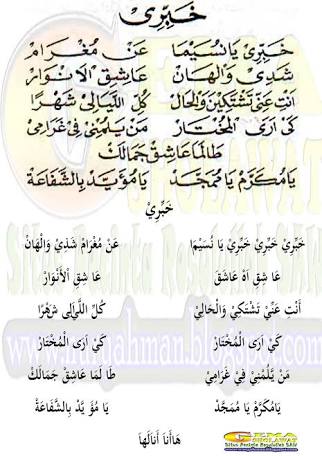 خَبِّرِى
خَبِّرِى يَانُسَيْمَا عَنْ مُغْرَامْ
شَذِى وَلْهَانْ عَاشِقِ الْاَنْوَارْ
اَنْتِ عَنِّى تَشْتَكِيْنَ وَالْحَالْ كُلَّ اللَّيَالِىْ شَهْرًا
كَىْ اَرَى الْمُخْتَارْ مَنْ يَلُمْنِىْ فِىْ غَرَامِىْ
طَالَمَا عَاشِقْ جَمَالَكْ
يَامُكَرَّمْ يَا مُمَجَّدْ يَا مُؤَيَّدْ بِالشَّفَاعَةْ
خَبِّرِيْ
خَبِّرِيْ خَبِّرِيْ خَبِّرِيْ يَا نُسَيْمَا عَنْ مُغْرَامْ شَذِيْ وَالْهَانْ
عَاشِقِ اَهْ عَاشَقْ عَا شِقِ اْلأَنْوَارْ
أَنْتِ عَنِّيْ تَشْتَكِيْ وَالْحَالِيْ كُلَّ اللَّيَلَى شَهْرًا
كَيْ اَرَى الْمُخْتَارْ كَيْ اَرَى الْمُخْتَارْ
مَنْ يَّلُمْنِيْ فِيْ غَرَامِيْ طَا لَمَا عَاشِقْ جَمَالَكْ
يَامُكَرَّمْ يَا مُمَجَّدْ يَا مُؤَ يَّدْ بِالشَّفَاعَةْ
هَاأَنَا أَنَالَهاَ
GEMA
SHOLAWAT
Situs Pecinta Rosulullah SAW